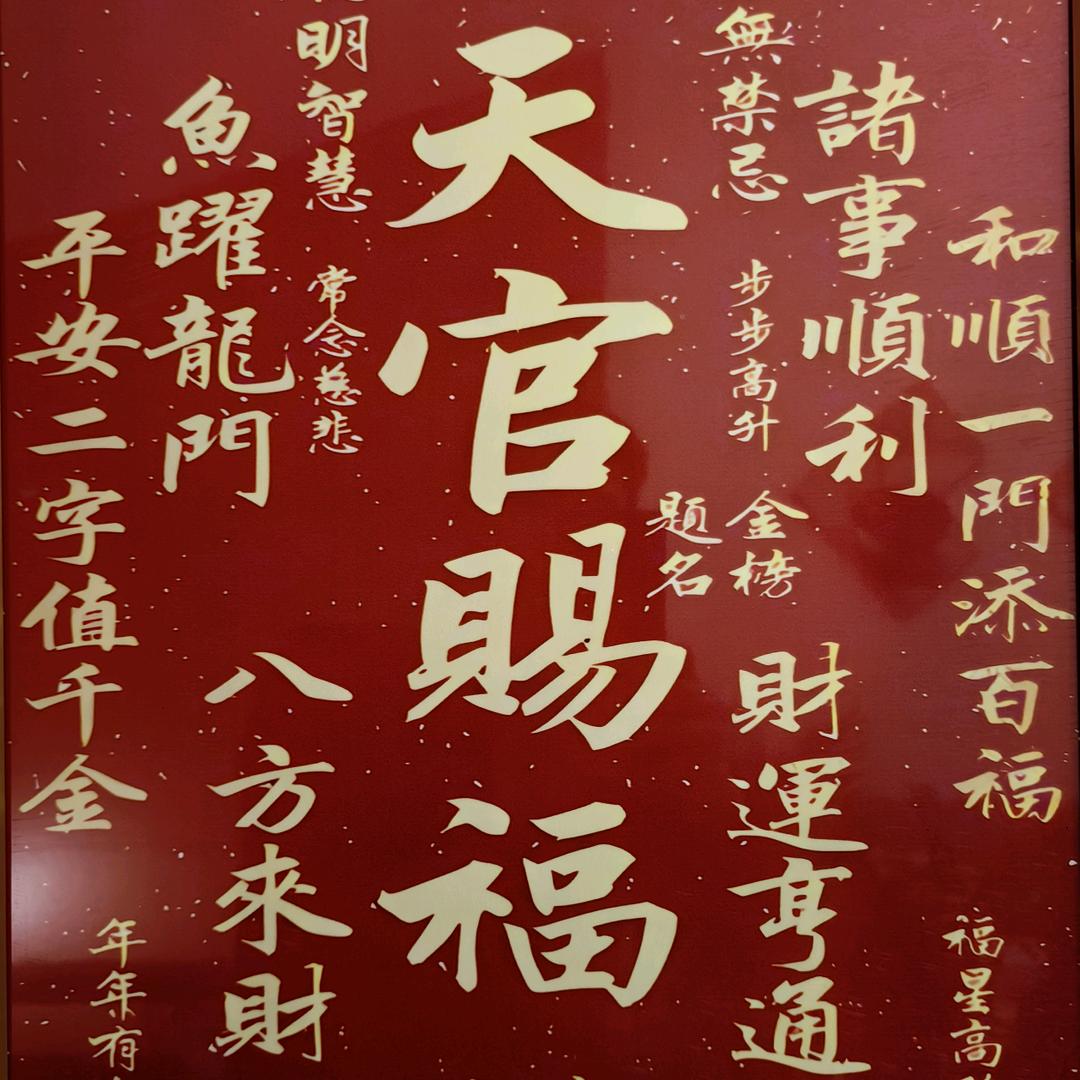 和順一門添百福
福星高
諸事順利
財運亨通
無禁忌
步步高升
金榜
題名
天官賜福
明智慧
常念慈悲
魚躍龍門
八方來財
平安二字值千金
年年有